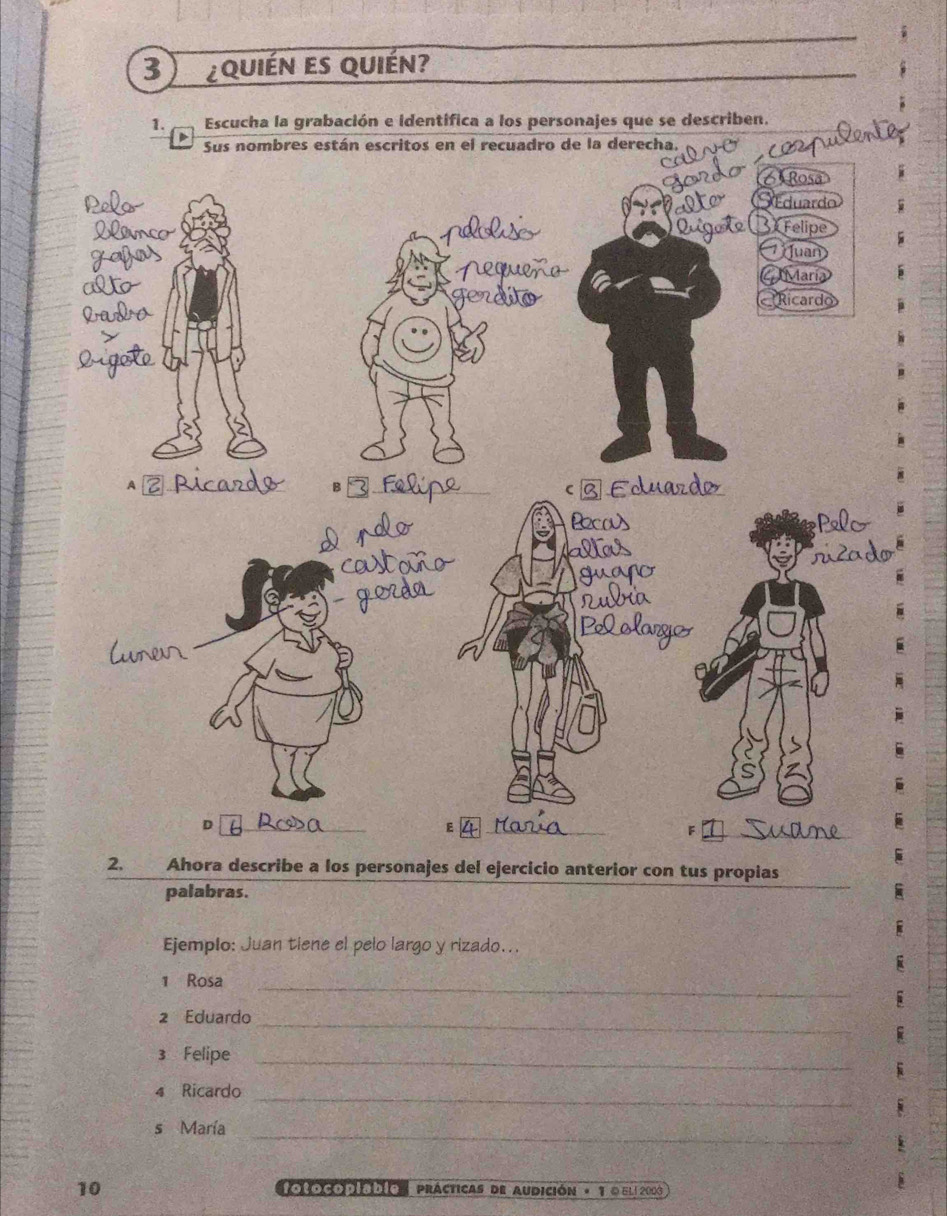 3 ¿QUIÉN ES QUIÉN?
1. Escucha la grabación e identifica a los personajes que se describen.
Sus nombres están escritos en el recuadro de la derecha.
calvo
gordo, corpulento
alto
bigote
6 Rosa
5 Eduardo
3 Felipe
1 Juan
4 María
2 Ricardo
Pelo
blanco
gafas
alto
barba
y
bigote
pelo liso
pequeño
gordito
A 2 Ricardo
B 3 Felipe
C Eduardo
el pelo
castaño
- gorda
lunar
Pecas
altas
guapo
rubia
Pelo largo
Pelo
rizado
D 6 Rosa
E 4 María
F 1 Juane
2. Ahora describe a los personajes del ejercicio anterior con tus propias
palabras.
Ejemplo: Juan tiene el pelo largo y rizado...
1 Rosa
2 Eduardo
3 Felipe
4 Ricardo
5 María
10 fotocopiable PRÁCTICAS DE AUDICIÓN • 1 © ELI 2003